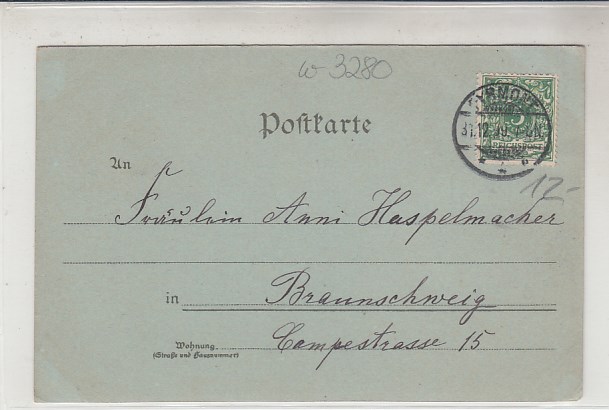 w-3280
PYRMONT
31.12.
REICHSPOST
Postkarte
12-
An
Fräulein Anni Haspelmacher
in Braunschweig
Wohnung.
(Straße und Hausnummer)
Campestrasse 15